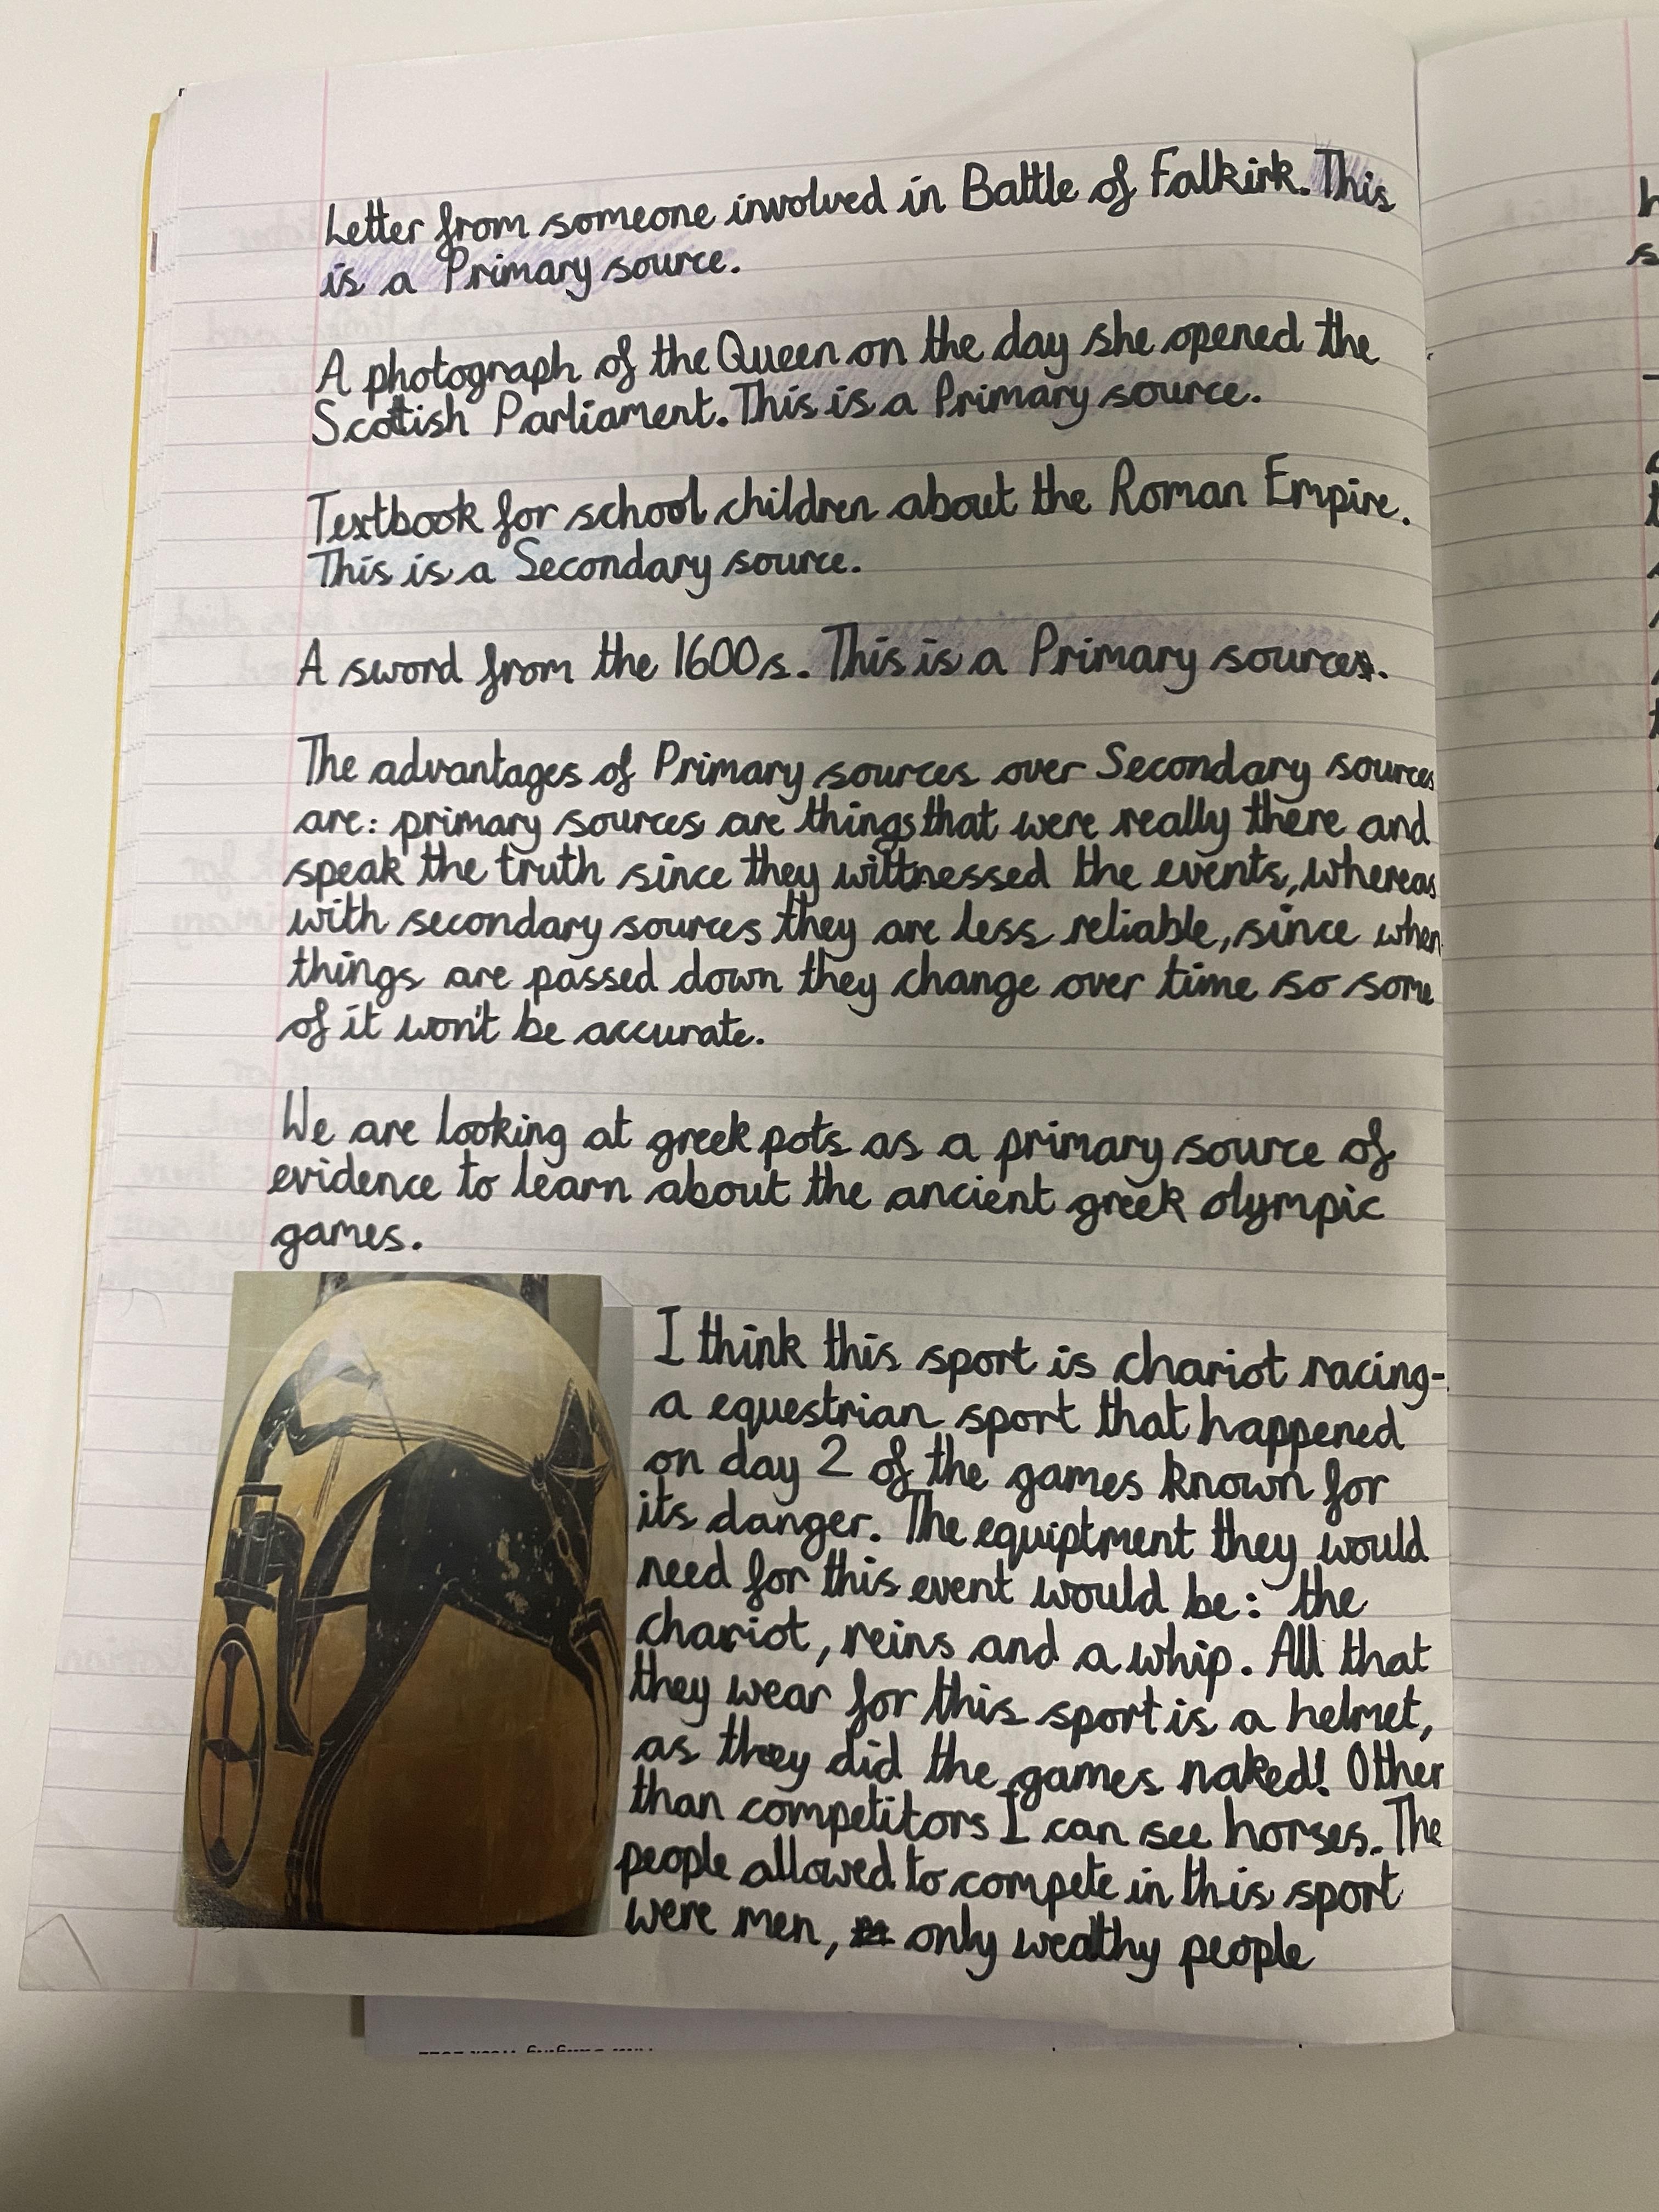 Letter from someone involved in Battle of Falkirk. This
is a Primary source.
A photograph of the Queen on the day she opened the
Scottish Parliament. This is a Primary source.
Textbook for school children about the Roman Empire.
This is a Secondary source.
A sword from the 1600s. This is a Primary source.
The advantages of Primary sources over Secondary sources
are: primary sources are things that were really there and
speak the truth since they wittnessed the events, whereas
with secondary sources they are less reliable, since when
things are passed down they change over time so some
of it won't be accurate.
We are looking at greek pots as a primary source of
evidence to learn about the ancient greek olympic
games.
I think this sport is chariot racing-
a equestrian sport that happened
on day 2 of the games known for
its danger. The equiptment they would
need for this event would be: the
chariot, reins and a whip. All that
they wear for this sport is a helmet,
as they did the games naked! Other
than competitors I can see horses. The
people allowed to compete in this sport
were men, only wealthy people